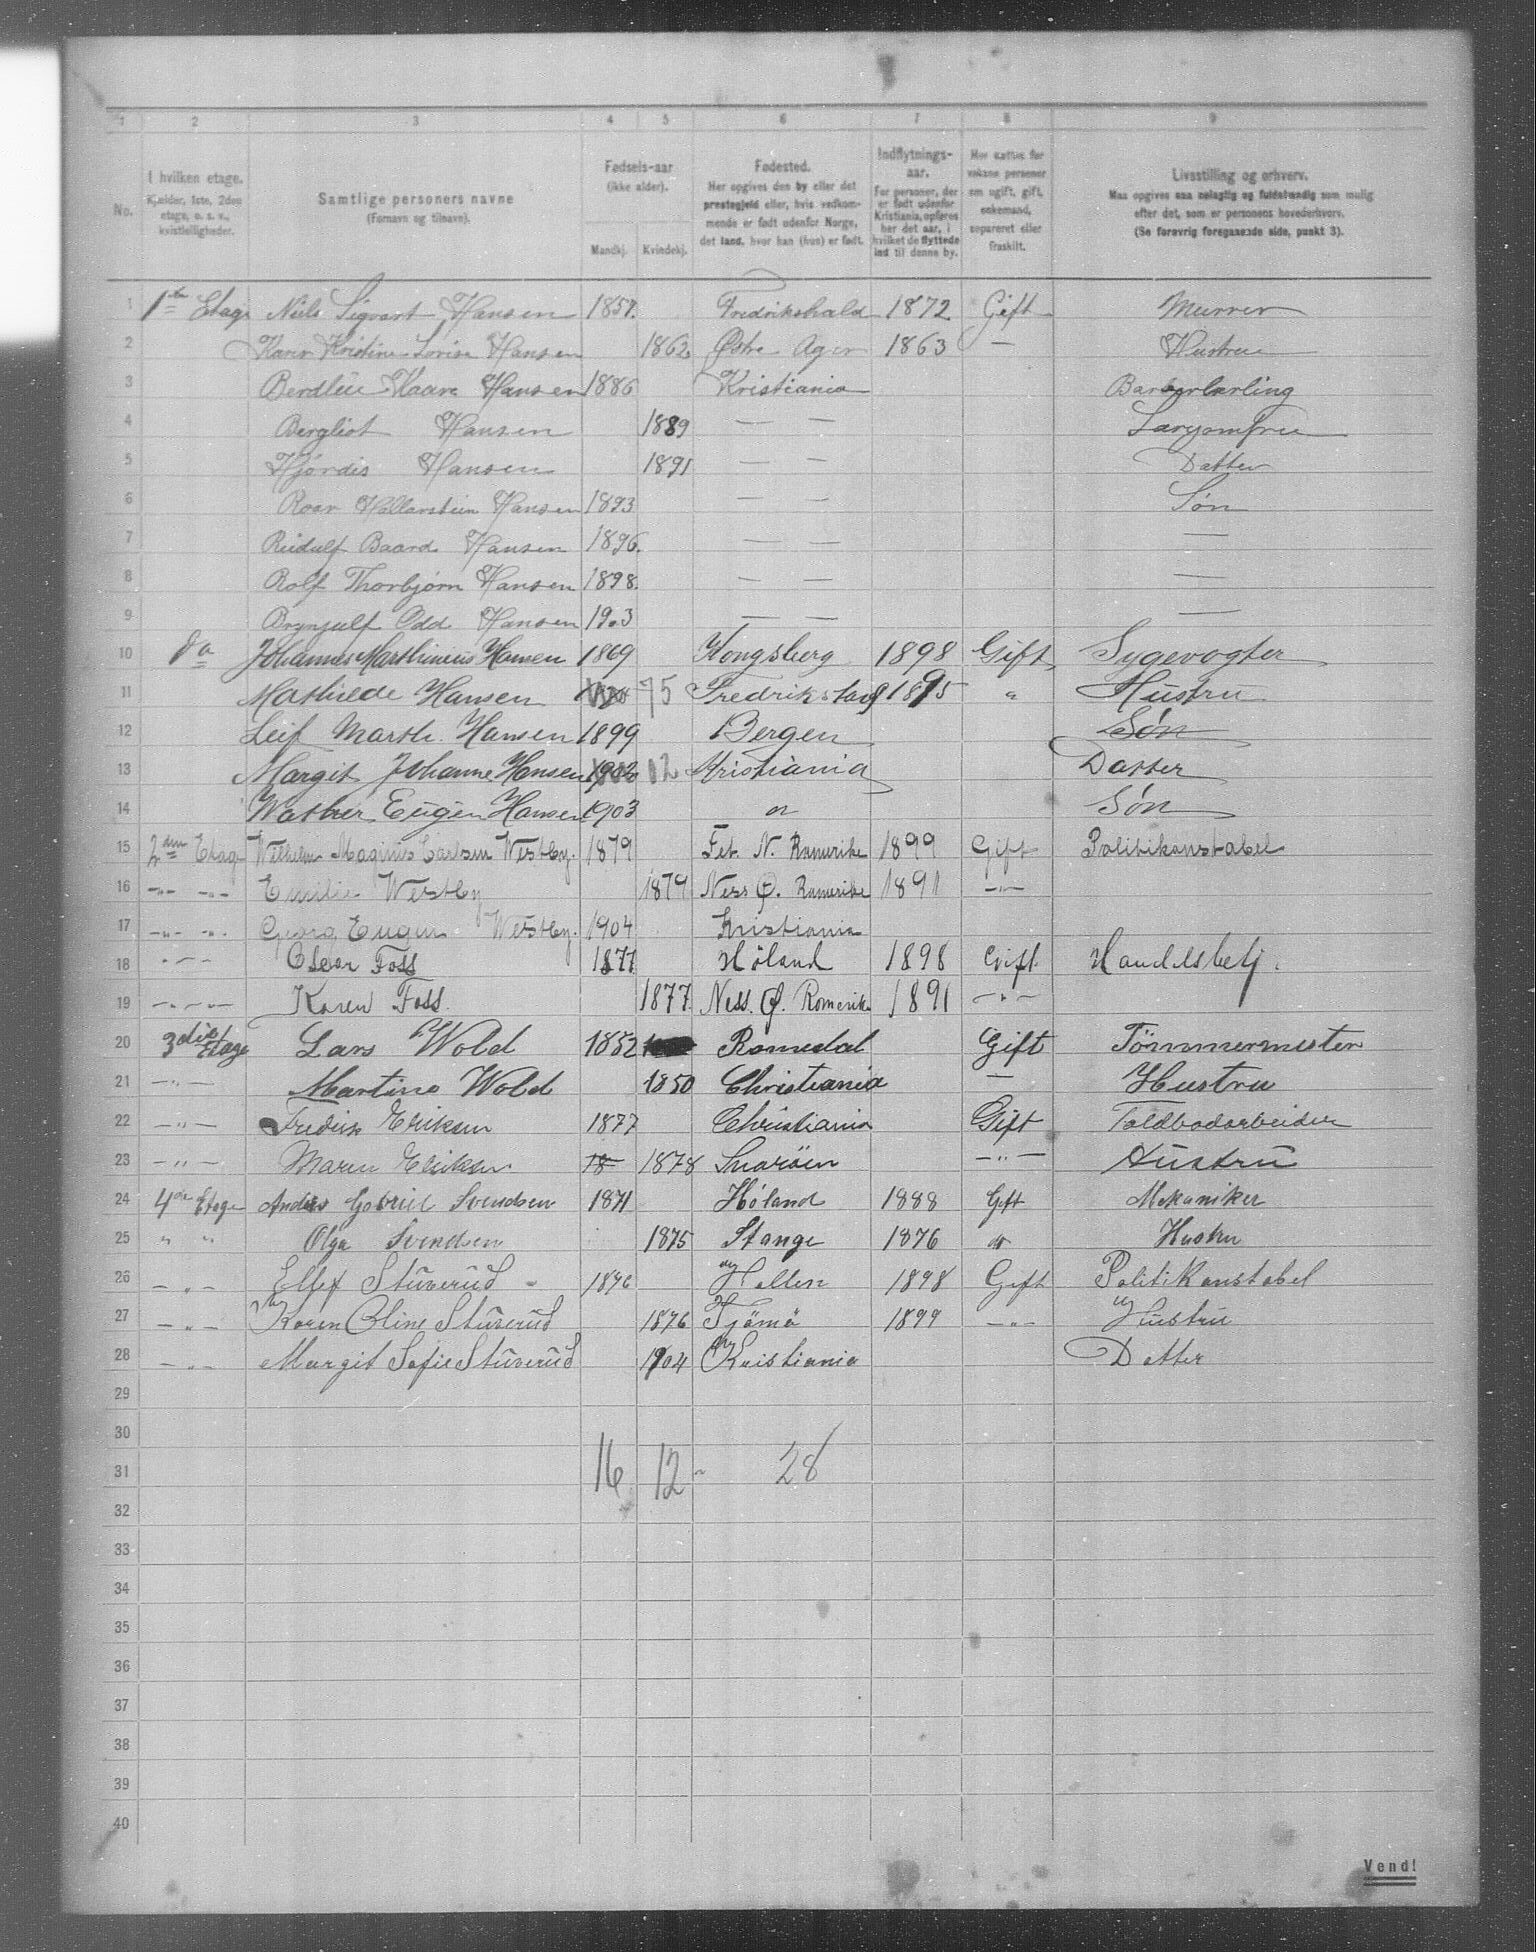 1 2 3 4 5 6 7 8 9
No.
I hvilken etage. Kjælder, 1ste, 2den etage, o. s. v., kvistleiligheder.
Samtlige personers navne (Fornavn og tilnavn).
Fødsels-aar (ikke alder). Mandkj. Kvindekj.
Fødested. Her opgives den by eller det prestegjeld eller, hvis vedkommende er født udenfor Norge, det land, hvor han (hun) er født.
Indflytnings-aar. For personer, der er født udenfor Kristiania, opføres her det aar, i hvilket de flyttede ind til denne by.
Her sættes for voksne personer om ugift, gift, enkemand, separeret eller fraskilt.
Livsstilling og erhverv. Maa opgives saa nøiagtig og fuldstændig som mulig efter det, som er personens hovederhverv. (Se forøvrig foregaaende side, punkt 3).
1 1ste Etage Nils Sigvart Hansen 1857. Fredrikshald 1872 Gift Murrer
2 Karen Kristine Lovise Hansen 1862 Østre Ager 1863 — Hustru
3 Berdleie Kaare Hansen 1886 Kristiania Barberlærling
4 Bergliot Hansen 1889 — — Larjomfru
5 Hjørdis Hansen 1891 — — Datter
6 Roar Hallarstein Hansen 1893 — — Søn
7 Reidulf Baard Hansen 1896. — — —
8 Rolf Thorbjørn Hansen 1898. — — —
9 Brynjulf Odd Hansen 1903 — — —
10 do Johannes Marthinius Hansen 1869 Kongsberg 1898 Gift Sygevogter
11 Mathilde Hansen 75 Fredrikstad 1895 " Hustru
12 Leif Marth. Hansen 1899 Bergen Søn
13 Margit Johanne Hansen 1902 02 Kristiania Datter
14 Walther Eugen Hansen 1903 " Søn
15 2den Etage Wilhelm Maginus Carlsen Westby. 1879 Fet. N. Romerike 1899 Gift Politikonstabel
16 —"— —"— Emilie Westby 1879 Ness Ø. Romerike 1891 —"—
17 —"— —"— Georg Eugen Westby. 1904 Kristiania
18 —"— Oscar Foss 1877 Høland 1898 Gift. Handelsbetj.
19 —"—"— Karen Foss. 1877. Ness. Ø. Romerike 1891 —"—
20 3die Etage Lars Wold 1852 Romedal Gift Tömmermester
21 —"— Martine Wold 1850 Christiania — Hustru
22 —"— Fredrik Eriksen 1877 Christiania Gift Toldbodarbeider
23 —"— Maren Eriksen 18 1878 Snaröen —"— Hustru
24 4de Etage Anders Gabriel Svendsen 1871 Høland 1888 Gift Mekaniker
25 " " Olga Svendsen 1875 Stange 1876 " Hustru
26 —"— Ellef Stüverud 1876 Hollen 1898 Gift Politikonstabel
27 —"— Karen Oline Stüverud 1876 Tjömö 1899 —"— Hustru
28 —"— Margit Sofie Stüverud 1904 Kristiania Datter
29
30
31 16 12 - 28
32
33
34
35
36
37
38
39
40
Vend!